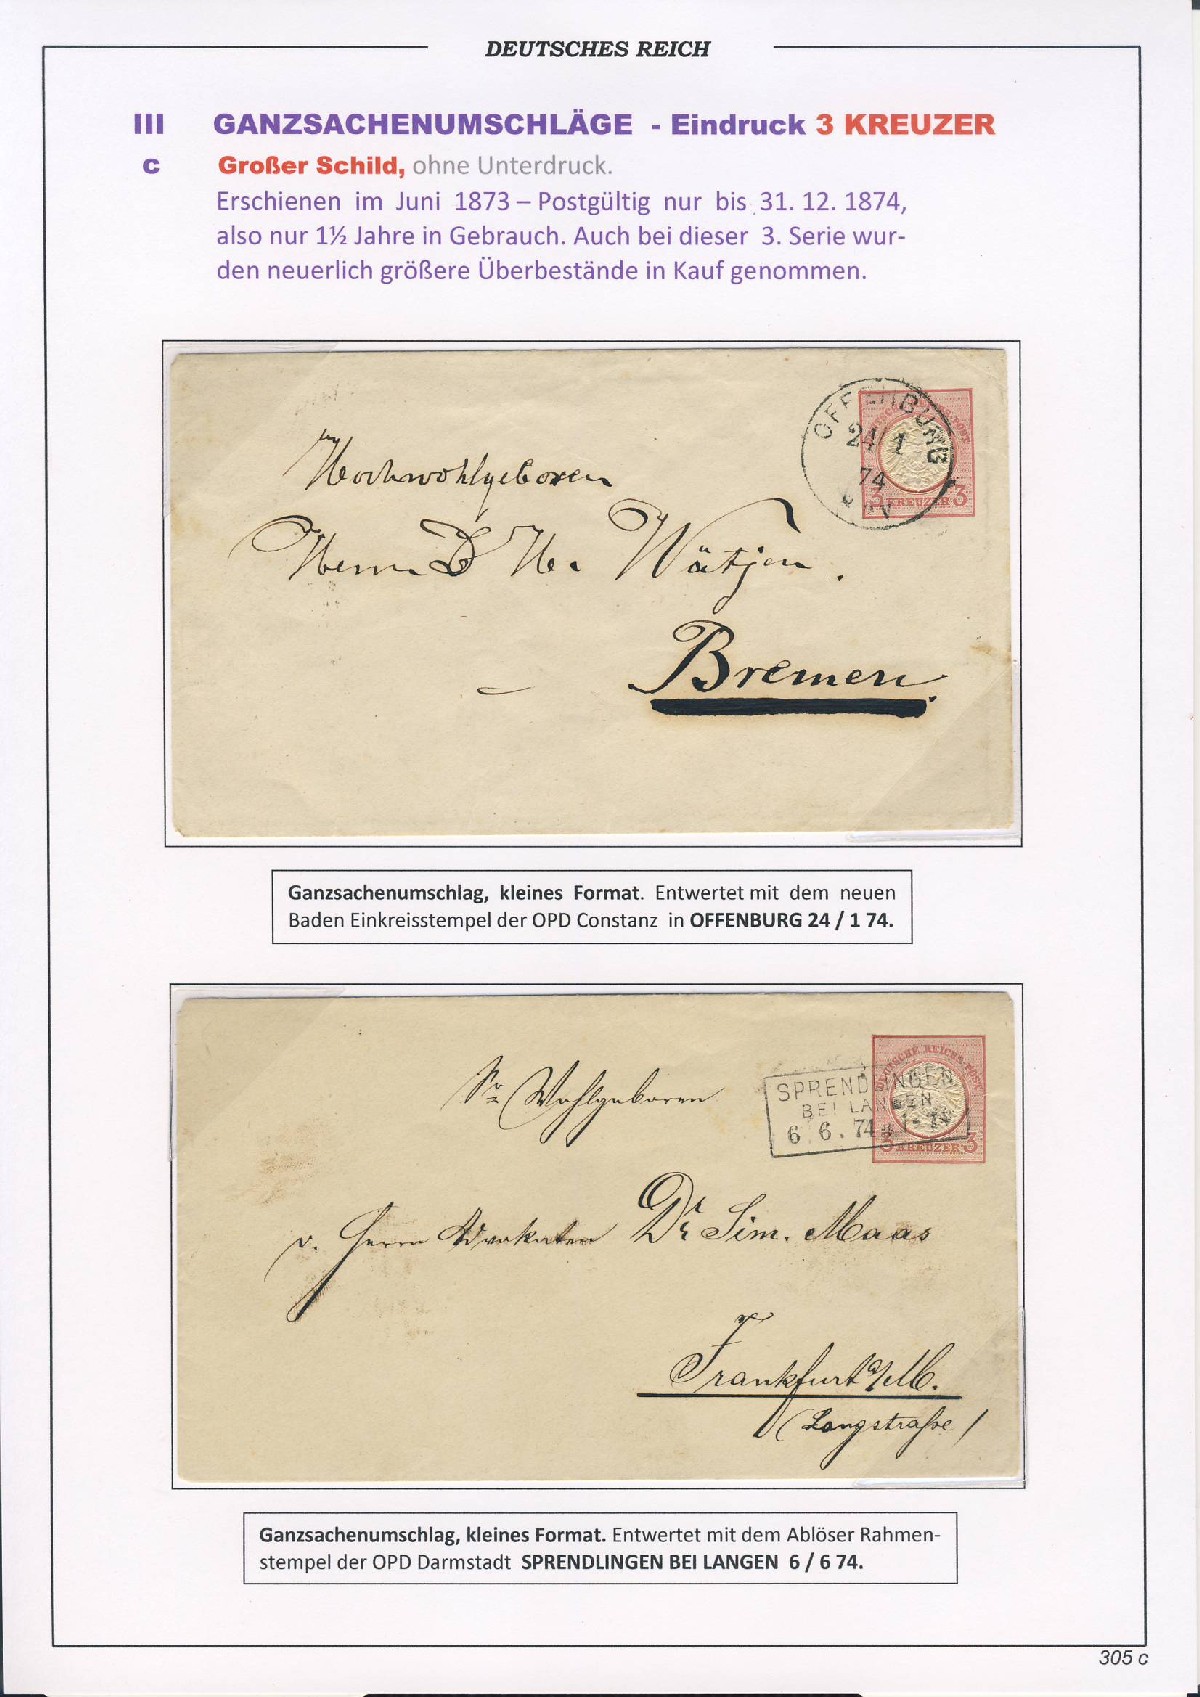 DEUTSCHES REICH
III GANZSACHENUMSCHLÄGE - Eindruck 3 KREUZER
c Großer Schild, ohne Unterdruck.
Erschienen im Juni 1873 – Postgültig nur bis 31. 12. 1874,
also nur 1½ Jahre in Gebrauch. Auch bei dieser 3. Serie wur-
den neuerlich größere Überbestände in Kauf genommen.
OFFENBURG
24 1
74
3 KREUZER 3
Hochwohlgeboren
Herrn D H. Wätjen.
Bremen.
Ganzsachenumschlag, kleines Format. Entwertet mit dem neuen
Baden Einkreisstempel der OPD Constanz in OFFENBURG 24 / 1 74.
DEUTSCHE REICHS-POST
SPRENDLINGEN
BEI LANGEN
6 6. 74
3 KREUZER 3
Sr Wohlgeboren
Herrn Advokaten Dr Sim. Maas
Frankfurt a/M.
(Langstraße)
Ganzsachenumschlag, kleines Format. Entwertet mit dem Ablöser Rahmen-
stempel der OPD Darmstadt SPRENDLINGEN BEI LANGEN 6 / 6 74.
305 c